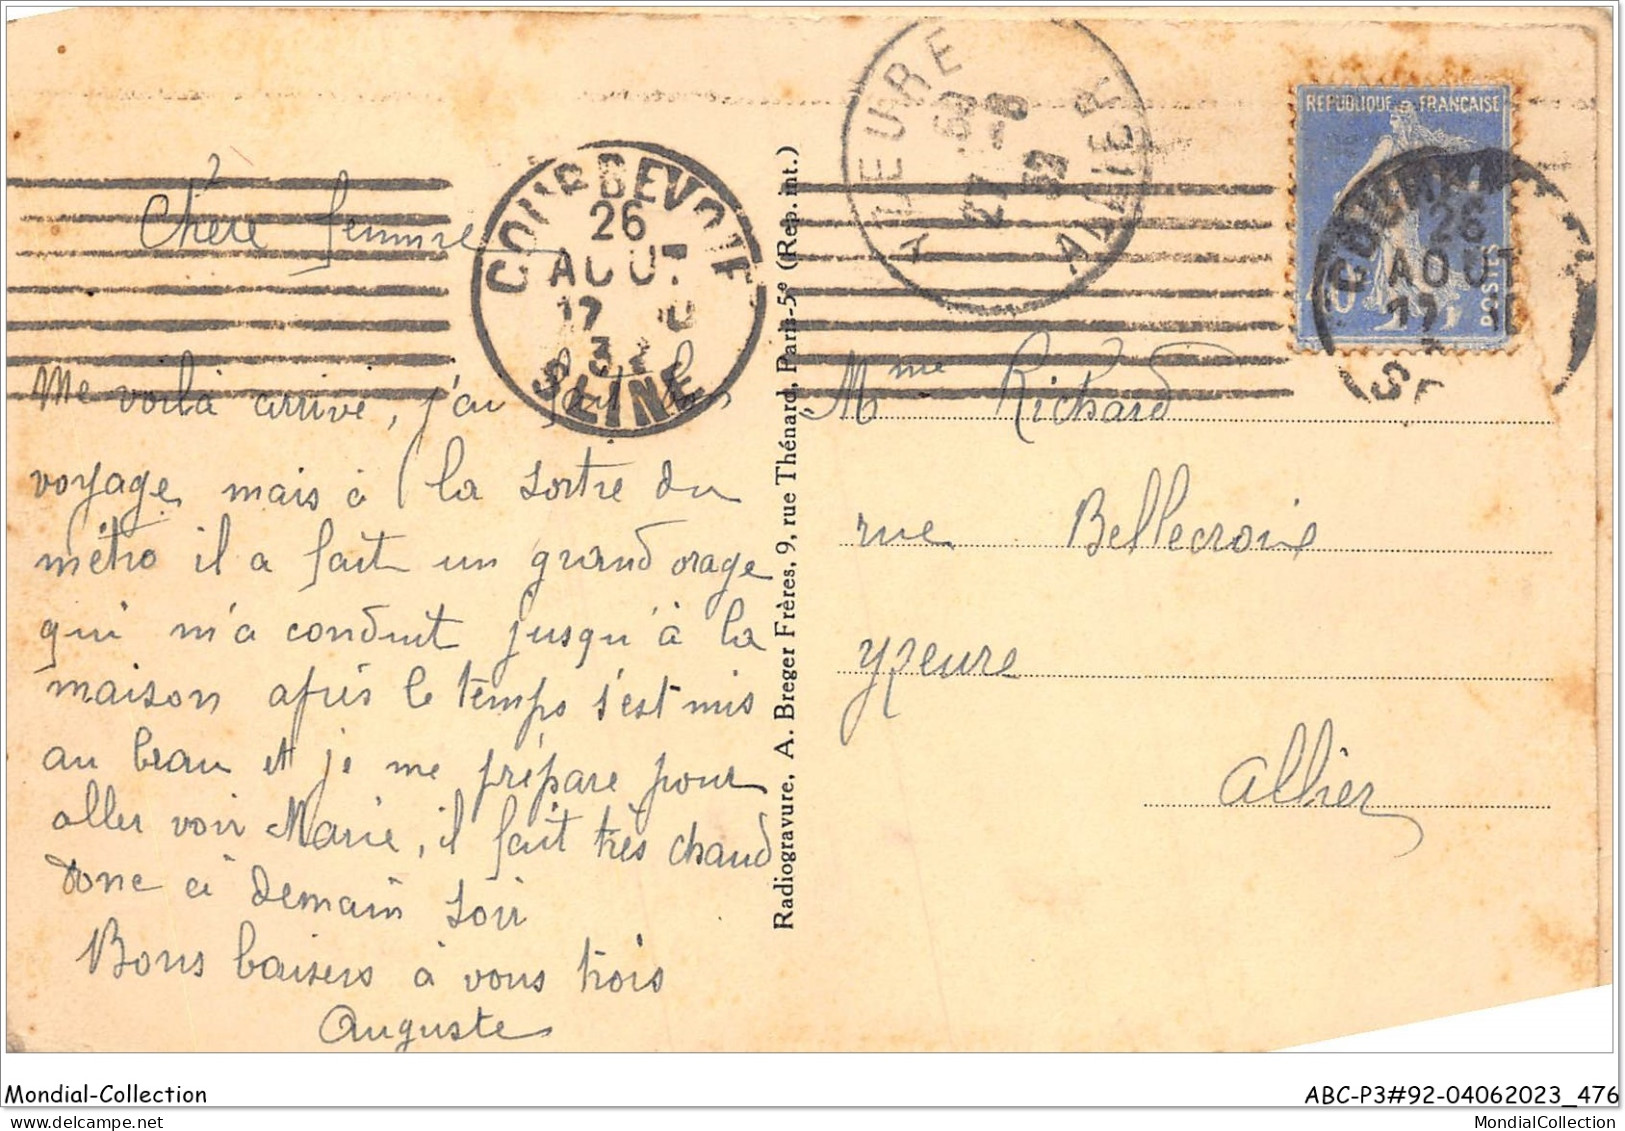 Chère femme
Me voilà arrivé, j'ai fait bon
voyage mais à la sortie du
métro il a fait un grand orage
qui m'a conduit jusqu'à la
maison après le temps s'est mis
au beau et je me prépare pour
aller voir Marie, il fait très chaud
donc à demain soir
Bons baisers à vous trois
Auguste
COURBEVOIE
26
AOUT
SEINE
Radiogravure, A. Breger Frères, 9, rue Thénard, Paris-5e (Rep. int.)
YZEURE
27 -8
ALLIER
REPUBLIQUE FRANÇAISE
POSTES
26
AOUT
Mme Richard
rue Bellecroix
Yzeure
Allier
Mondial-Collection
ABC-P3#92-04062023_476
MondialCollection